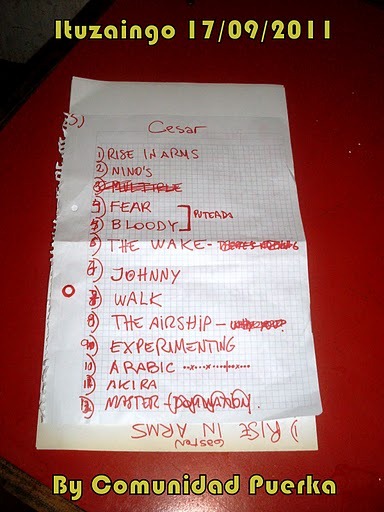 Ituzaingo 17/09/2011
Cesar
1) RISE IN ARMS
2) NINO'S
3) MULTIPLE
4) FEAR
5) BLOODY ] PUTEADA
6) THE WAKE -
7) JOHNNY
8) WALK
9) THE AIRSHIP -
EXPERIMENTING
10) ARABIC
AKIRA
MASTER
1) RISE IN ARMS
Gaston
By Comunidad Puerka